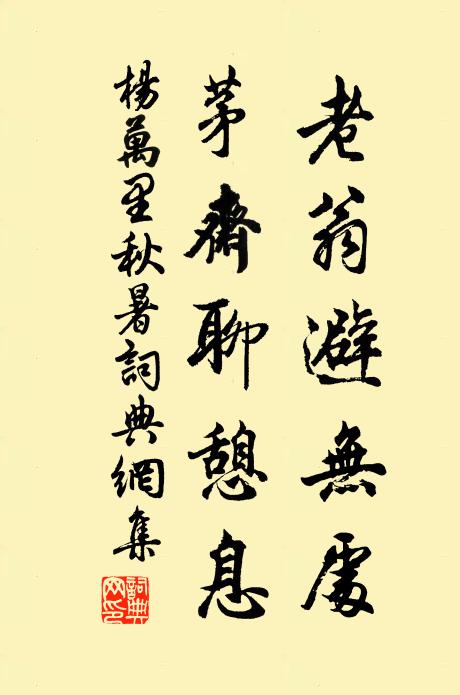 老翁避無處
茅齋聊憩息
楊萬里秋暑詞典網集
詞典網印